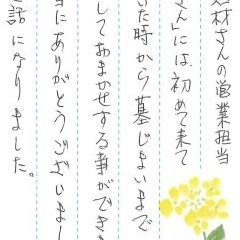 材さんの営業担当
さん」には、初めて来て
いた時から墓じまいまで
しておまかせする事ができま
にありがとうございまし
話になりました。